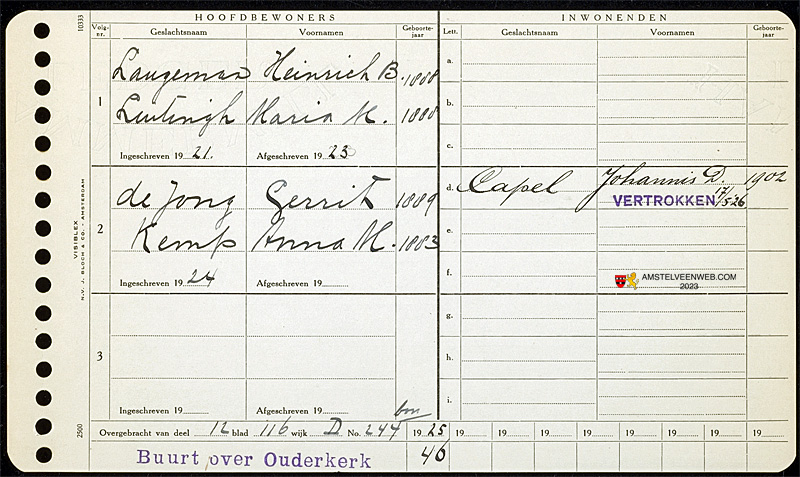 10333
HOOFDBEWONERS
Volg-nr. Geslachtsnaam Voornamen Geboorte-jaar
1
Langeman Heinrich B. 1888
Luitingh Maria M. 1888
Ingeschreven 19 21. Afgeschreven 19 23
2
de Jong Gerrit 1889
Kemp Anna M. 1883
Ingeschreven 19 24 Afgeschreven 19
3
Ingeschreven 19 Afgeschreven 19
INWONENDEN
Lett. Geslachtsnaam Voornamen Geboorte-jaar
a.
b.
c.
d. Capel Johannis D. 1902
VERTROKKEN 17/5 26
e.
f.
AMSTELVEENWEB.COM
2023
g.
h.
i.
Overgebracht van deel 12 blad 116 wijk D No. 244 19 25 19 19 19 19 19 19 19 19
Buurt over Ouderkerk 46
VISIBLEX
N.V. J. BLOCH & CO. - AMSTERDAM
2500